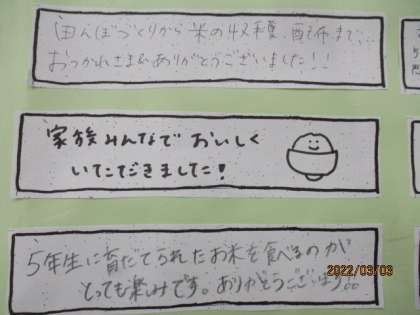 田んぼづくりから米の収穫、配布まで…
おつかれさま&ありがとうございました!!
家族みんなで おいしく
いただきました!
5年生に育だてられたお米を食べるのが
とっても楽しみです。ありがとうございます!!
2022/03/03